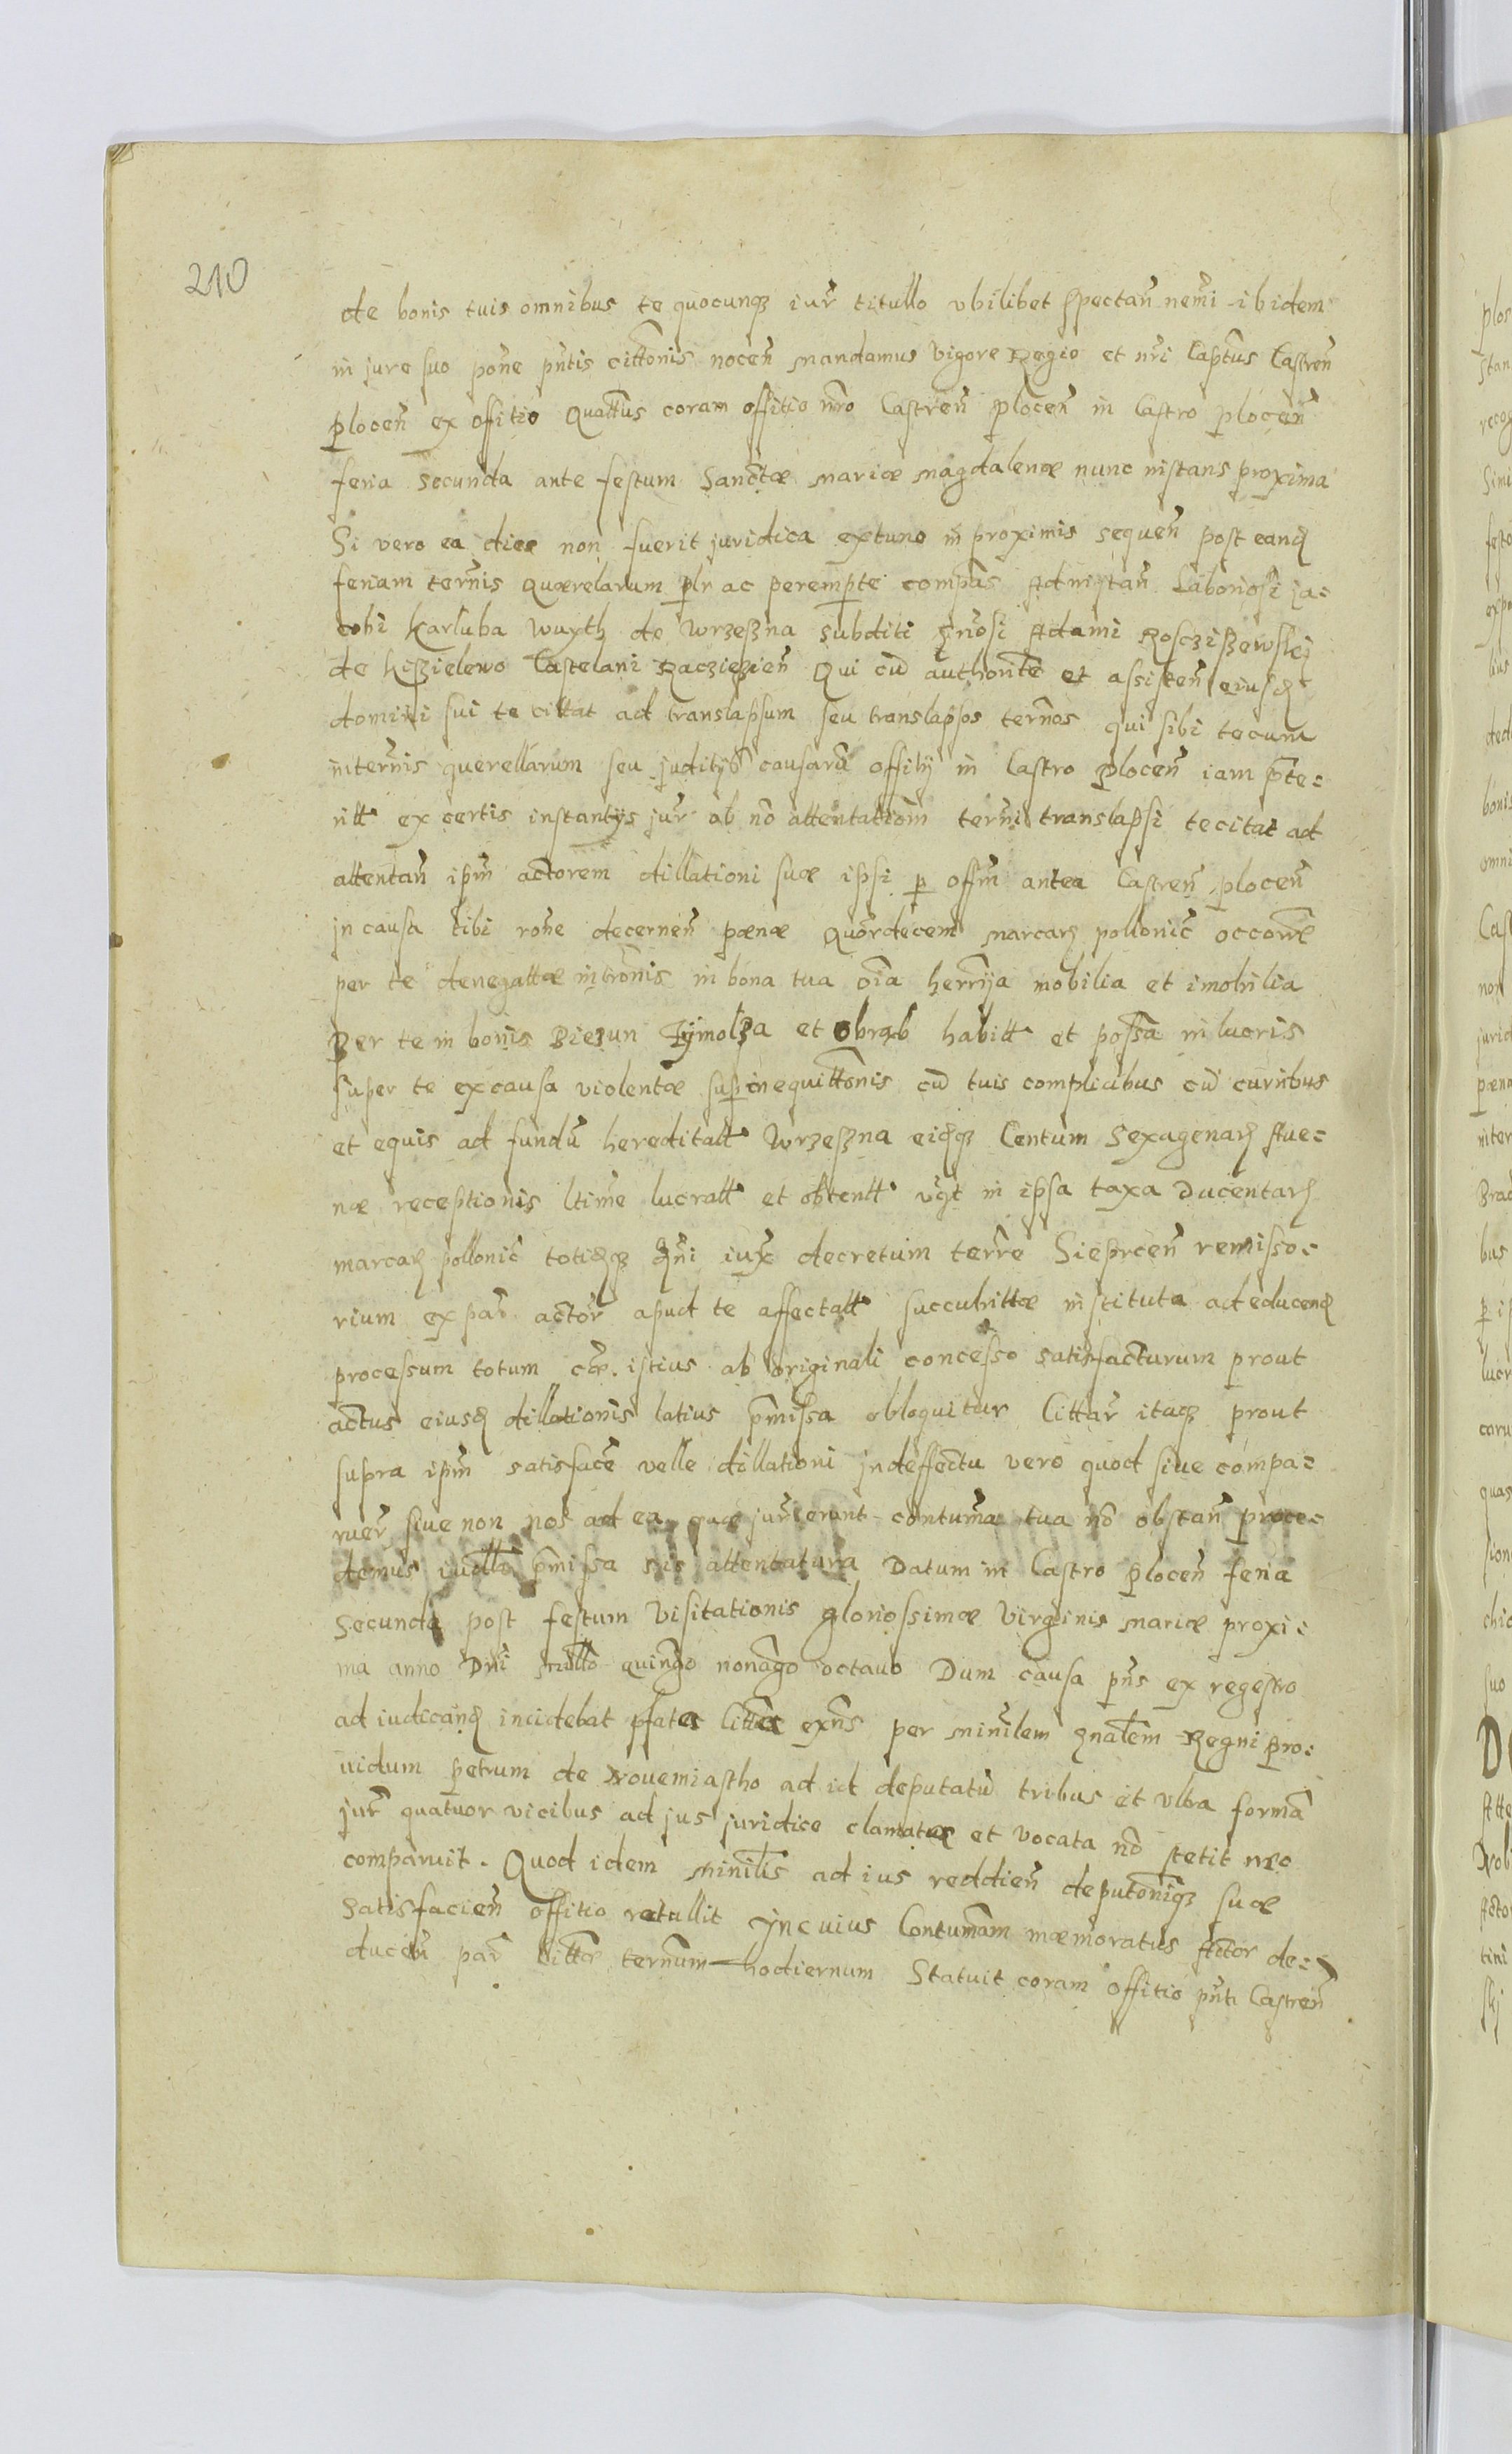 210
de bonis tuis omnibus te quocunqz iur̃ titullo vbilibet spectañ nemi ibidem
in jure suo pone pñtis cittõnis noceñ mandamus vigore Regio et nr̃i Captũs Castreñ
ploceñ ex offitio Quattũs coram offitio nr̃o Castreñ ploceñ in Castro ploceñ
feria secunda ante festum Sanctæ mariæ magdalenæ nunc instans proxima
Si vero ea dies non fuerit juridica extunc in proximis sequeñ post eand
feriam termis Quærelarum plr ac perempte compas Ad nistañ Laboriosi ja=
cobi Karluba wuyth de wrzeszna subditi Gnosi Adami Rosczissewskj
de Kossielewo Castelani Racziezieñ Qui cũ authoritẽ et assisteñ eiusd
domini sui te cittat ad translapsum seu translapsos termos qui sibi tecum
in termis querellarum seu judityś causarũ offitij in Castro ploceñ iam p̃te=
ritt ex certis instantijs jur̃ ab nõ attentatiom̃ termi translapsi te citat ad
attentañ ipm̃ actorem dillationi suæ ipsi p offm̃ antea Castreñ ploceñ
jn causa tibi rõne decerneñ pænæ quordecem marcar pollonic̃
per te denegattæ intrõnis in bona tua oĩa herrija mobilia et imobilia
Per te in bonis Biezun Zymolza et obrab habitt et possã in lucris
super te ex causa violentæ supinequittõnis cũ tuis complicibus cũ curribus
et equis ad fundũ hereditatt wrzeszna eidqz Centum Sexagenar Aue=
næ receptionis ltime lucratt et obtentt vgt in ipsa taxa Ducentar
marcar pollonic̃ totidqz dñi iux decretum terre Sieprceñ remisso=
rium ex par̃ actor̃ apud te affectatt succubittæ instituta ad educend
processum totum istius ab originali concesso satisfacturum prout
actus eiusd dillationis latius p̃missa obloquitur littar̃ itaqz prout
supra ipm̃ satisfacẽ velle dillationi jn deffectu vero quod siue compa=
ruer̃ siue non nos ad ea quæ jur̃ erunt contuma tua nõ obstañ proce=
demus p̃missa sis attentatura Datum in Castro ploceñ feria
secunda post festum Visitationis gloriossimæ Virginis mariæ proxi=
ma anno Dñi millõ quingõ nonagõ octauo Dum causa pñs ex regestro
ad iudicand incidebat pfatæ littæ exñs per minilem gnalem Regni pro=
uidum petrum de Nouemiastho ad id deputatũ tribus et vltra formã
jur̃ quatuor vicibus ad jus juridice clamatæ et vocata nõ stetit nec
comparuit. Quod idem minilis ad ius reddieñ deputõniqz suæ
satisfacieñ offitio retullit jn cuius Contumam mæmoratus Actor de=
duceñ par̃ littæ termum hodiernum Statuit coram offitio pñti Castreñ